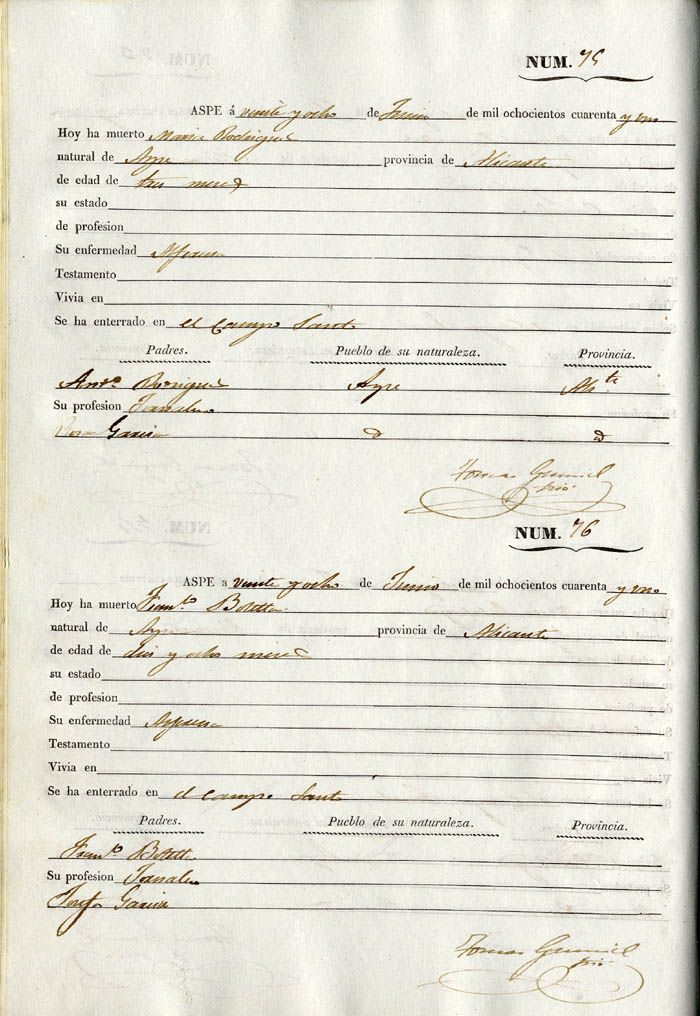 NUM. 75
ASPE á veinte y ocho de Junio de mil ochocientos cuarenta y uno
Hoy ha muerto Maria Rodriguez
natural de Aspe provincia de Alicante
de edad de tres meses
su estado
de profesion
Su enfermedad
Testamento
Vivia en
Se ha enterrado en el Campo Santo
Padres. Pueblo de su naturaleza. Provincia.
Ant.º Rodriguez Aspe Ali.te
Su profesion Jornalero
Rosa Garcia
Tomas
NUM. 76
ASPE a veinte y ocho de Junio de mil ochocientos cuarenta y uno
Hoy ha muerto Fran.co Botella
natural de Aspe provincia de Alicante
de edad de diez y ocho meses
su estado
de profesion
Su enfermedad
Testamento
Vivia en
Se ha enterrado en el Campo Santo
Padres. Pueblo de su naturaleza. Provincia.
Fran.co Botella
Su profesion Jornalero
Josefa Garcia
Tomas